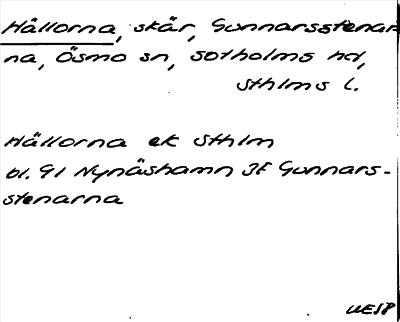 Hållorna, skär, Gunnarsstenar-
na, Ösmo sn, Sotholms hd,
Sthlms l.
Hällorna ek Sthlm
bl. 91 Nynäshamn 3f Gunnars-
stenarna